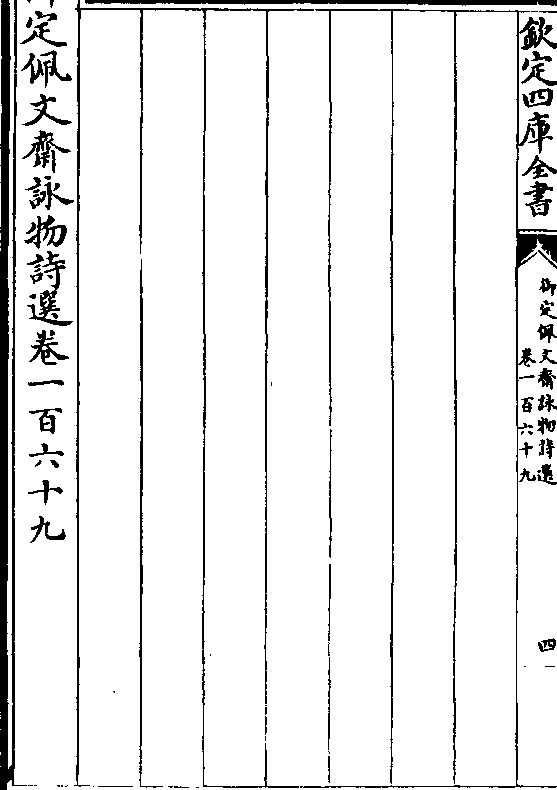 欽定四庫全書
御定佩文齋詠物詩選
卷一百六十九
四
御定佩文齋詠物詩選卷一百六十九